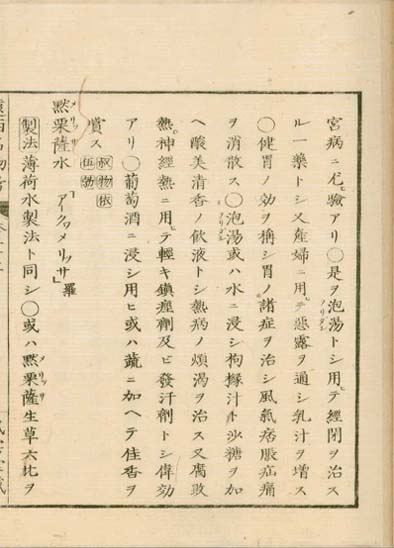 宮病ニ尤驗アリ○是ヲ泡湯トシ用テ經閉ヲ治ス
ル一藥トシ又産婦ニ用テ惡露ヲ通シ乳汁ヲ増ス
○健胃ノ効ヲ稱シ胃ノ諸症ヲ治シ風氣痞脹疝痛
ヲ消散ス○泡湯或ハ水ニ浸シ枸櫞汁ト沙糖ヲ加
ヘ酸美清香ノ飲液トシ熱病ノ煩渇ヲ治ス又腐敗
熱神經熱ニ用テ輕キ鎮痙劑及ビ發汗劑トシ偉効
アリ○葡萄酒ニ浸シ用ヒ或ハ蔬ニ加ヘテ佳香ヲ
賞ス
黙栗薩水 「アークワメリッサ」羅
製法薄荷水製法ト同シ○或ハ黙栗薩生草六比ヲ